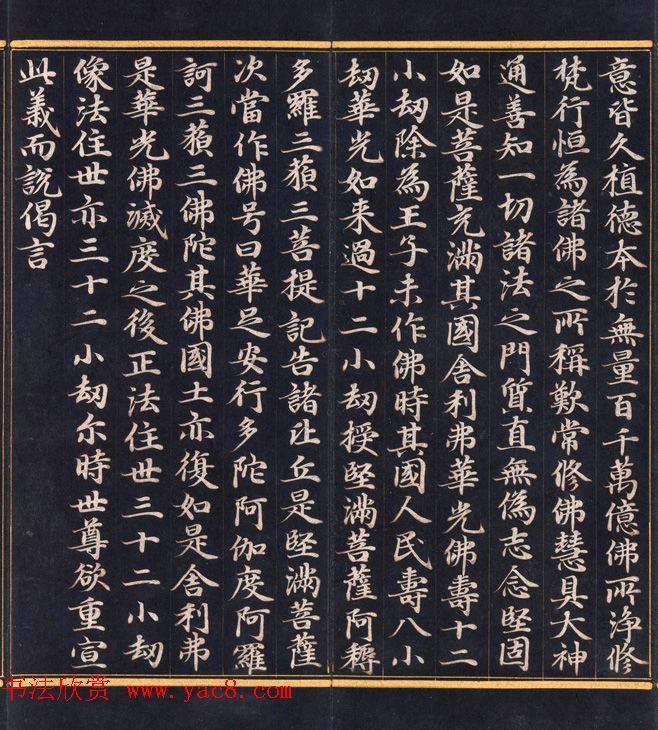 意皆久植德本於無量百千萬億佛所淨修
梵行恒為諸佛之所稱歎常修佛慧具大神
通善知一切諸法之門質直無偽志念堅固
如是菩薩充滿其國舍利弗華光佛壽十二
小劫除為王子未作佛時其國人民壽八小
劫華光如来過十二小劫授堅滿菩薩阿耨
多羅三藐三菩提記告諸比丘是堅滿菩薩
次當作佛号曰華足安行多陀阿伽度阿羅
訶三藐三佛陀其佛國土亦復如是舍利弗
是華光佛滅度之後正法住世三十二小劫
像法住世亦三十二小劫尔時世尊欲重宣
此義而說偈言
书法欣赏 www.yac8.com